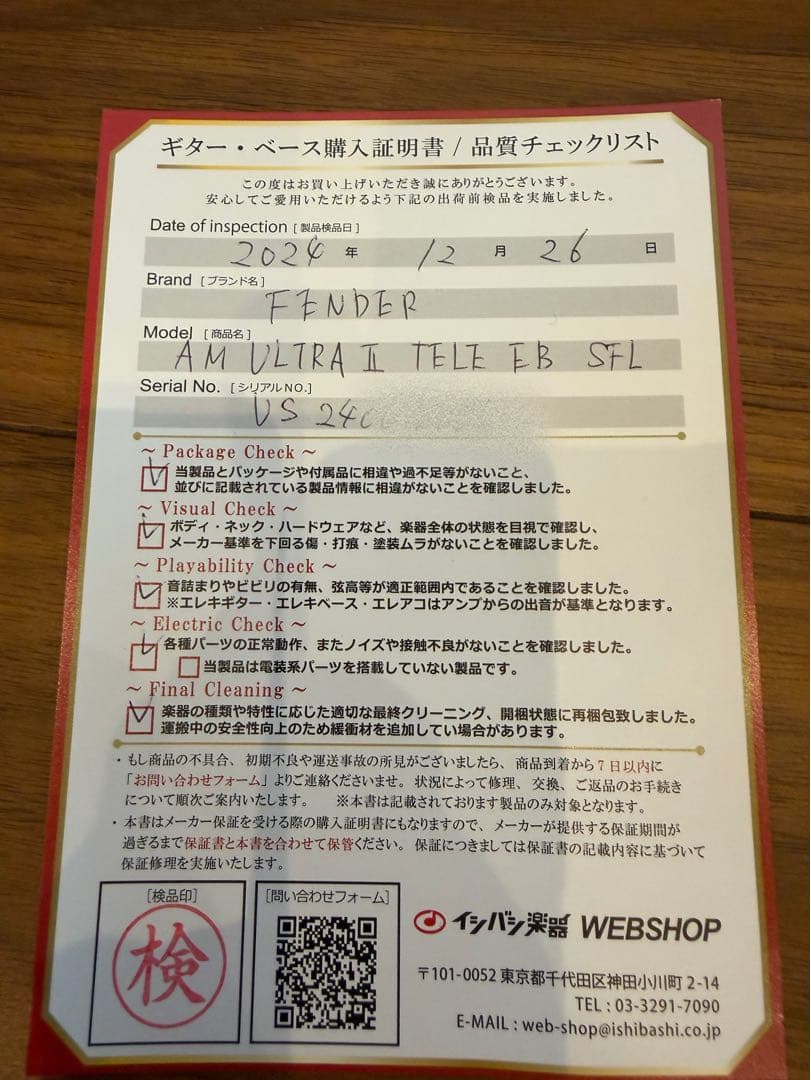 ギター・ベース購入証明書 / 品質チェックリスト
この度はお買い上げいただき誠にありがとうございます。
安心してご愛用いただけるよう下記の出荷前検品を実施しました。
Date of inspection [製品検品日]
2024 年 12 月 26 日
Brand [ブランド名]
FENDER
Model [商品名]
AM ULTRA II TELE EB SFL
Serial No. [シリアルNO.]
US 240
～ Package Check ～
当製品とパッケージや付属品に相違や過不足等がないこと、
並びに記載されている製品情報に相違がないことを確認しました。
～ Visual Check ～
ボディ・ネック・ハードウェアなど、楽器全体の状態を目視で確認し、
メーカー基準を下回る傷・打痕・塗装ムラがないことを確認しました。
～ Playability Check ～
音詰まりやビビリの有無、弦高等が適正範囲内であることを確認しました。
※エレキギター・エレキベース・エレアコはアンプからの出音が基準となります。
～ Electric Check ～
各種パーツの正常動作、またノイズや接触不良がないことを確認しました。
当製品は電装系パーツを搭載していない製品です。
～ Final Cleaning ～
楽器の種類や特性に応じた適切な最終クリーニング、開梱状態に再梱包致しました。
運搬中の安全性向上のため緩衝材を追加している場合があります。
・もし商品の不具合、初期不良や運送事故の所見がございましたら、商品到着から7日以内に
「お問い合わせフォーム」よりご連絡くださいませ。状況によって修理、交換、ご返品のお手続き
について順次ご案内いたします。 ※本書は記載されております製品のみ対象となります。
・本書はメーカー保証を受ける際の購入証明書にもなりますので、メーカーが提供する保証期間が
過ぎるまで保証書と本書を合わせて保管ください。保証につきましては保証書の記載内容に基づいて
保証修理を実施いたします。
[検品印]
検
[問い合わせフォーム]
イシバシ楽器 WEBSHOP
〒101-0052 東京都千代田区神田小川町 2-14
TEL : 03-3291-7090
E-MAIL : web-shop@ishibashi.co.jp